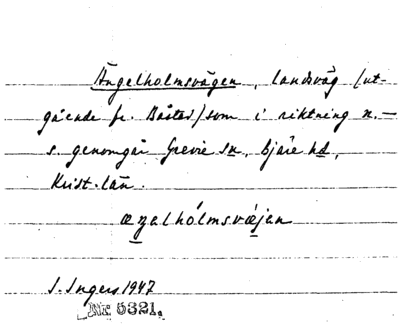 Ängelholmsvägen, landsväg (ut-
gående fr. Båstad) som i riktning n.—
s. genomgår Grevie sn, Bjäre hd,
Krist. län.
æŋalhólmsvæjan
I. Ingers 1947
Nr. 5321.